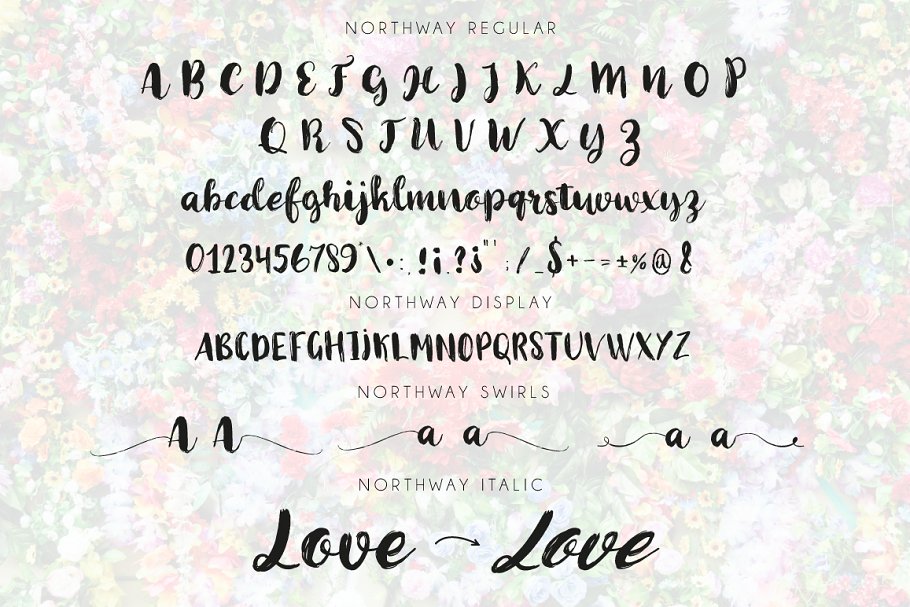 NORTHWAY REGULAR
A B C D E F G H I J K L M N O P
Q R S T U V W X Y Z
abcdefghijklmnopqrstuvwxyz
0123456789*\•:,!¡.?¿"';/_$+-–=±%@&
NORTHWAY DISPLAY
ABCDEFGHIJKLMNOPQRSTUVWXYZ
NORTHWAY SWIRLS
A A a a a a
NORTHWAY ITALIC
Love → Love